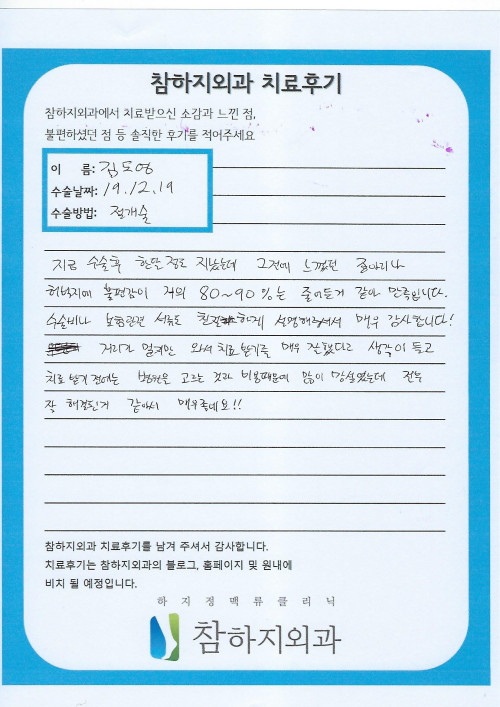 참하지외과 치료후기
참하지외과에서 치료받으신 소감과 느낀 점,
불편하셨던 점 등 솔직한 후기를 적어주세요
이 름: 김도영
수술날짜: 19.12.19
수술방법: 절개술
지금 수술후 한달 정도 지났는데 그전에 느꼈던 종아리나
허벅지에 불편감이 거의 80~90%는 줄어든거 같아 만족입니다.
수술비나 보험관련 서류도 친절하게 설명해주셔서 매우 감사합니다!
거리가 멀지만 와서 치료 받기를 매우 잘했다고 생각이 들고
치료 받기 전에는 병원은 고르는 것과 비용때문에 많이 망설였는데 전부
잘 해결된거 같아서 매우좋네요!!
참하지외과 치료후기를 남겨 주셔서 감사합니다.
치료후기는 참하지외과의 블로그, 홈페이지 및 원내에
비치 될 예정입니다.
하지정맥류클리닉
참하지외과